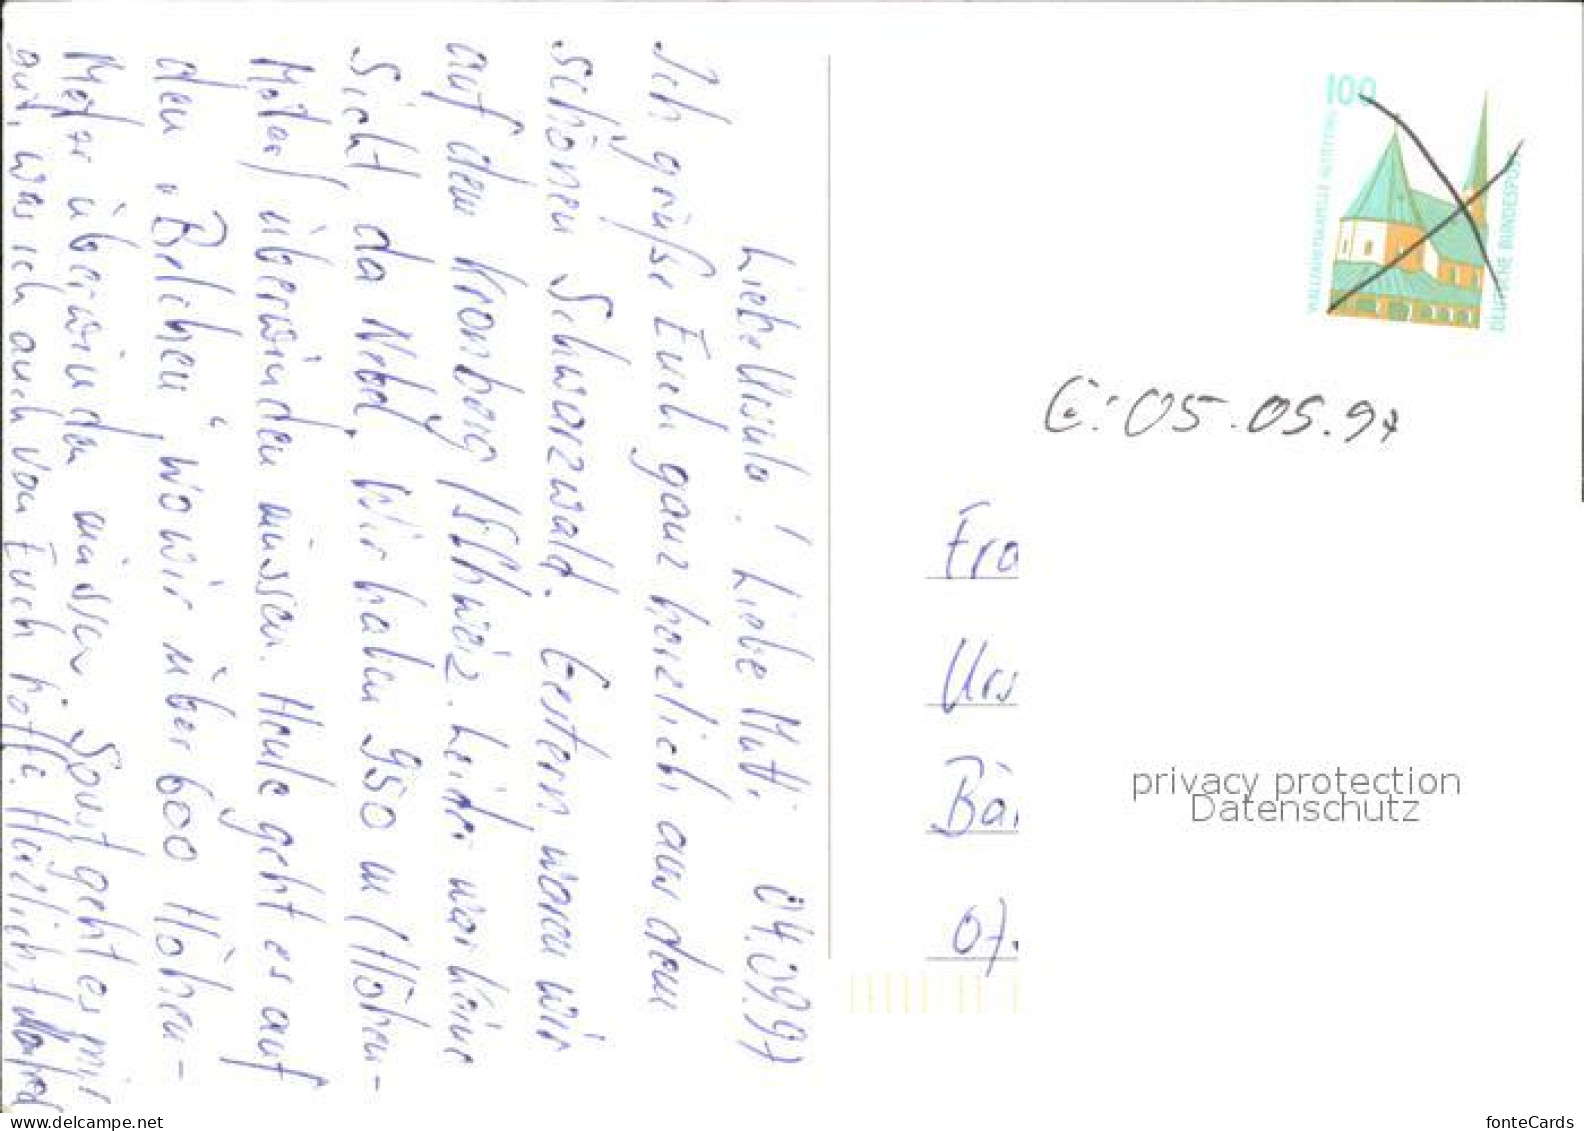 Liebe Ursula! Liebe Mutti 04.09.97
Ich grüße Euch ganz herzlich aus dem
schönen Schwarzwald. Gestern waren wir
auf dem Kronberg / Schweiz. Leider war keine
Sicht, da Nebel. Wir haben 950 m Höhen-
Meter überwinden müssen. Heute geht es auf
den "Belchen", wo wir über 600 Höhen-
Meter überwinden müssen. Sonst geht es mir
gut, was ich auch von Euch hoffe. Herzlichst
100
WALLFAHRTSKAPELLE ALTÖTTING
DEUTSCHE BUNDESPOST
E: 05.09.97
Fra
Urs
Bä
07.
privacy protection
Datenschutz
www.delcampe.net
fonteCards